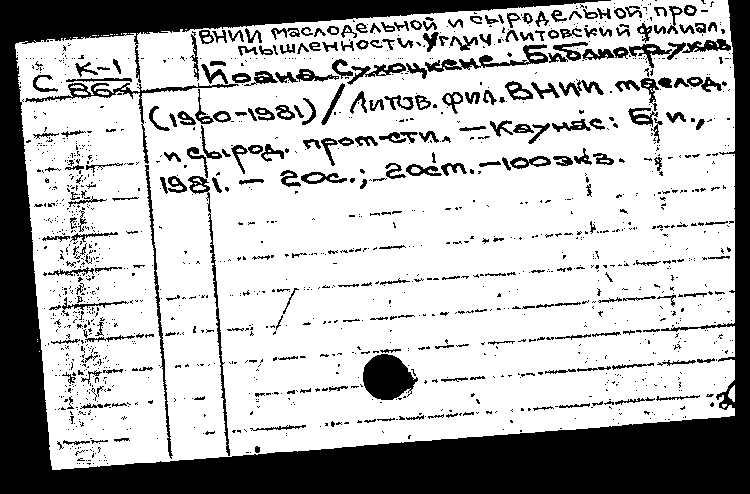 ВНИИ маслодельной и сыродельной про-
мышленности. Углич. Литовский филиал.
С К-1
864
Йоана Сухоцкене: Библиогр. указ.
(1960-1981) / Литов. фил. ВНИИ маслод.
и сырод. пром-сти. — Каунас: Б. и.,
1981. — 20с.; 20см. — 100экз.